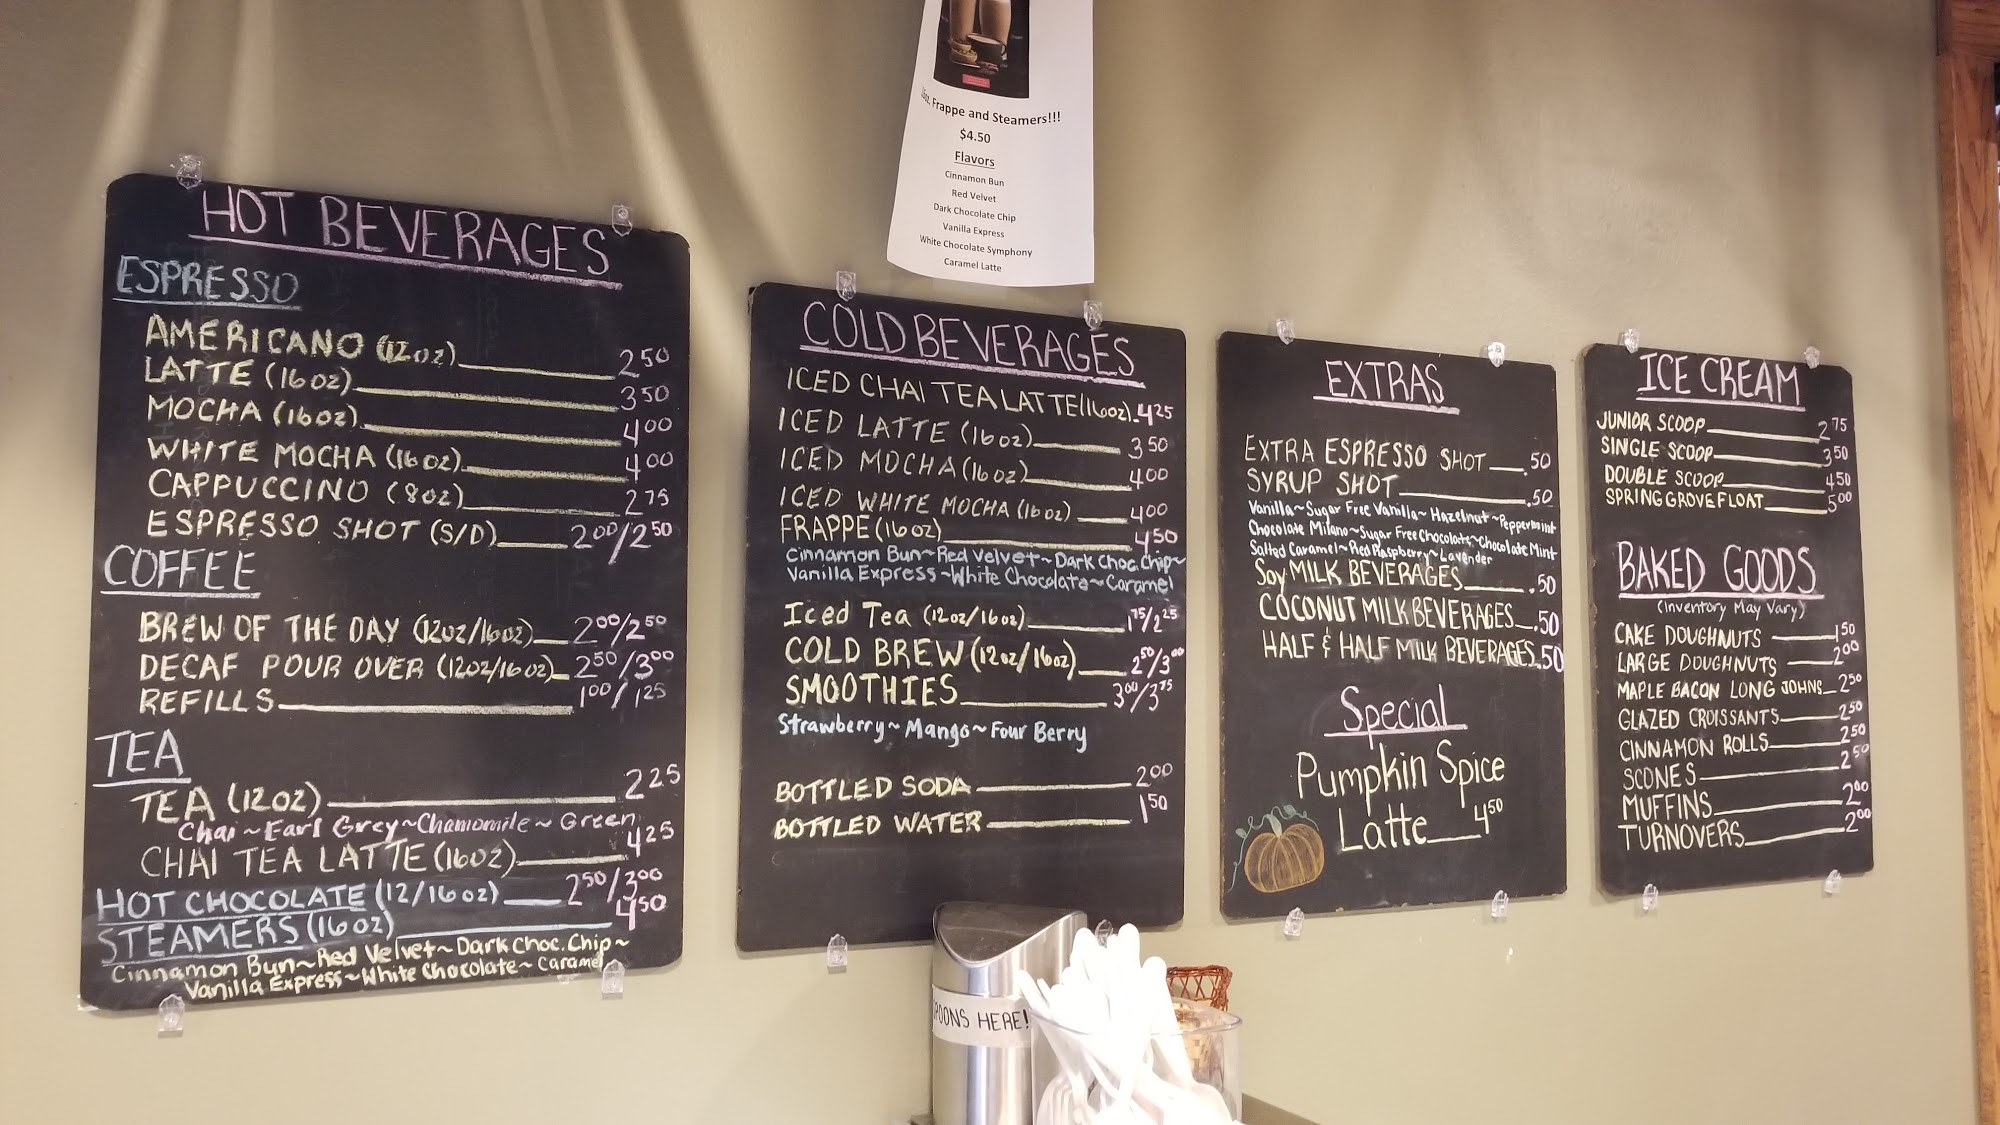 Frappe and Steamers!!!
$4.50
Flavors
Cinnamon Bun
Red Velvet
Dark Chocolate Chip
Vanilla Express
White Chocolate Symphony
Caramel Latte
HOT BEVERAGES
ESPRESSO
AMERICANO (12oz) 2 50
LATTE (16oz) 3 50
MOCHA (16oz) 4 00
WHITE MOCHA (16oz) 4 00
CAPPUCCINO (8oz) 2 75
ESPRESSO SHOT (S/D) 2 00/2 50
COFFEE
BREW OF THE DAY (12oz/16oz) 2 00/2 50
DECAF POUR OVER (12oz/16oz) 2 50/3 00
REFILLS 1 00/1 25
TEA
TEA (12oz) 2 25
Chai~Earl Grey~Chamomile~Green
CHAI TEA LATTE (16oz) 4 25
HOT CHOCOLATE (12/16oz) 2 50/3 00
STEAMERS (16oz) 4 50
Cinnamon Bun~Red Velvet~Dark Choc.Chip~
Vanilla Express~White Chocolate~Caramel
COLD BEVERAGES
ICED CHAI TEA LATTE (16oz) 4 25
ICED LATTE (16oz) 3 50
ICED MOCHA (16oz) 4 00
ICED WHITE MOCHA (16oz) 4 00
FRAPPE (16oz) 4 50
Cinnamon Bun~Red Velvet~Dark Choc.Chip~
Vanilla Express~White Chocolate~Caramel
Iced Tea (12oz/16oz) 1 75/2 25
COLD BREW (12oz/16oz) 2 50/3 00
SMOOTHIES 3 00/3 75
Strawberry~Mango~Four Berry
BOTTLED SODA 2 00
BOTTLED WATER 1 50
EXTRAS
EXTRA ESPRESSO SHOT .50
SYRUP SHOT .50
Vanilla~Sugar Free Vanilla~Hazelnut~Peppermint
Chocolate Milano~Sugar Free Chocolate~Chocolate Mint
Salted Caramel~Red Raspberry~Lavender
Soy MILK BEVERAGES .50
COCONUT MILK BEVERAGES .50
HALF & HALF MILK BEVERAGES .50
Special
Pumpkin Spice
Latte 4 50
ICE CREAM
JUNIOR SCOOP 2 75
SINGLE SCOOP 3 50
DOUBLE SCOOP 4 50
SPRING GROVE FLOAT 5 00
BAKED GOODS
(Inventory May Vary)
CAKE DOUGHNUTS 1 50
LARGE DOUGHNUTS 2 00
MAPLE BACON LONG JOHNS 2 50
GLAZED CROISSANTS 2 50
CINNAMON ROLLS 2 50
SCONES 2 50
MUFFINS 2 00
TURNOVERS 2 00
HERE!